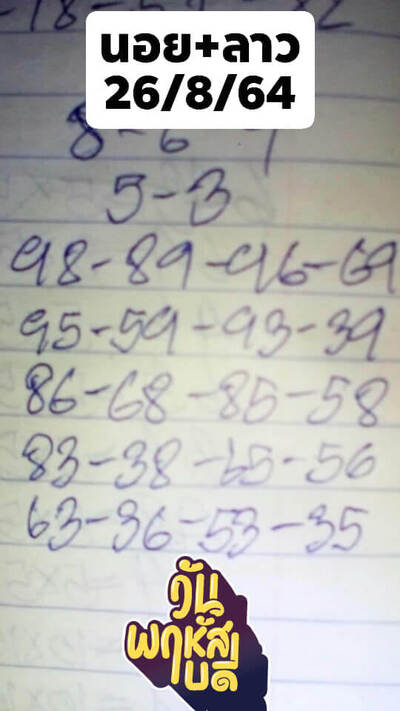 นอย+ลาว
26/8/64
8-6-9
5-3
98-89-96-69
95-59-93-39
86-68-85-58
83-38-65-56
63-36-53-35
วัน
พฤหัส
บดี